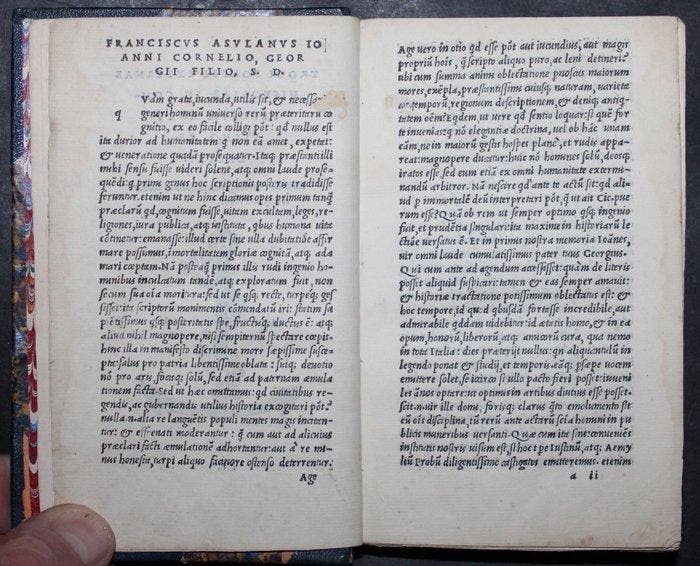 FRANCISCVS ASVLANVS IO
ANNI CORNELIO, GEOR
GII FILIO, S. D.
q Vam grata, iucunda, utilis sit, & necessaria
generi hominũ universo rerũ præteritarũ co
gnitio, ex eo facile colligi põt: qd nullus est
ita durior ad humanitatem q non eã amet, expetat:
& veneratione quadã prosequatur. Itaq; præstanti illi
mihi sensu fuisse videri solent, atq; omni laude prose-
quẽdi q primi genus hoc scriptionis posteris tradidisse
feruntur. etenim ut ne hinc dicamus opes primum tanq̃
præclarũ qd, cognitum fuisse, uitam excultam, leges, re-
ligiones, iura publica, atq; instituta, qbus humana uita
cõtinetur: emanasse: illud certe sine ulla dubitatiõe affir
mare possumus, imortalitatem gloria cognitã, atq; ada
mari cœptam. Nã posteaq̃ primus illis rudi ingenio ho
minibus inculcatum tandẽ, atq; exploratum fuit, non
secum sua oia moritura: sed ut se qsq; recte, turpeq; ges
sisset: ita scriptorũ monimentis cõmendatũ iri: statim sa
pẽtissimus qsq; posteritatis spe, fructuq; ductus ẽ: atq;
aliud nihil magnopere, nisi sempiternũ spectare cœpit.
hinc illa in manifesto discrimine mors sæpissime susce
pta: salus pro patria libentissime oblata: suiq; devotio
nõ pro aris, focisq; solũ, sed etiã ad paternam æmula
tionem facta. Sed ut hæc omittamus: qd civitatibus re-
gendis, ac gubernandis utilius historia excogitari põt?
nulla.n.alia re languẽtis populi mentes magis incitan-
tur: & effrenati moderantur: q̃ cum aut ad alicuius
præclari facti æmulationẽ adhortantur: aut a re mi-
nus honesta, turpi aliquo facinore ostenso deterrentur.
Age
Age vero in otio qd esse põt aut iucundius, aut magis
propriũ hois, q̃ scripto aliquo puro, ac leni detineri?
ubi cum summa animi oblectatione pnoscas maiorum
mores, exẽpla, præstantissimi cuiusq; naturam, uarieta
tẽ temporũ, regionum descriptionem, & deniq; anti-
tatem oẽm? Eqdem ut uere qd sentio loquar: si que for
te inuenias: q nõ elegantia doctrina, uel ob hãc unam
cãm, ne in maiorũ gestis hospes planẽ, et rudis appa-
reat: magnopere ducatur: huic nõ homines solũ, deosq;
iratos esse, sed cum etiã ex omni humanitate extermi-
nandũ arbitror. Nã nescire qd ante te actũ sit: qd aliud
p immortalẽ deũ interpretari põt, q̃ ut ait Cic. pue
rum esse? Quã ob rem ut semper optimo qsq; ingenio
fuit, et prudẽtia singulari: ita maxime in historiarũ le
ctiõe uersatus ẽ. Et in primis nostra memoria Ioãnes,
uir omni laude cumulatissimus pater tuus Georgius.
Qui cum ante ad agendum accessisset: quãm de literis
posset aliquid suspicari: tamen & eas semper amauit:
& historiæ tractatione potissimum oblectatus est: &
hoc tempore, id qu:d qbusdã fortasse incredibile, aut
admirabile qddam uidebitur: id ætatis homo, & in ea
opum, honorũ, liberorũ, atq; amicorũ cura, qua nemo
in tota Italia: dies præterijt nullus: qn aliquantulũ in
legendo ponat & studij, et temporis. eãq; psæpe uocem
emittere solet, se icirco si ullo pacto fieri posset: iuueni-
les ãnos optare: ut optimis in artibus diutius esse posset.
scit.n.uir ille domi, forisq; clarus quto emolumento sit
cũ ois disciplina, tũ rerũ ante actarũ sciẽtia homini in pu
blicis muneribus versanti. Quæ cum ita sint: conueniẽs
instituti nostris uisum est, si hoc tpe Iustinũ, atq; Aemy
liũ Probũ diligentissime castigatos emitteremus. etenim
a ii